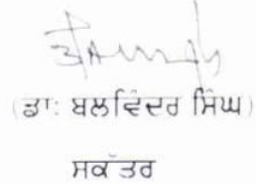 (ਡਾ: ਬਲਵਿੰਦਰ ਸਿੰਘ)
ਸਕੱਤਰ